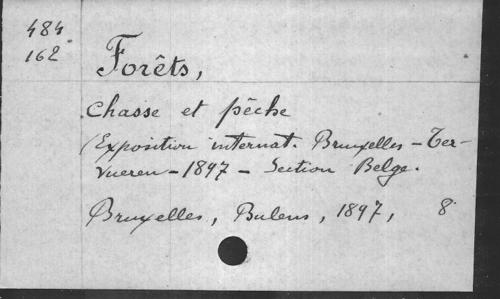 484
162
Forêts,
Chasse et pêche
(Exposition internat. Bruxelles - Ter-
vueren - 1897 - Section Belge.
Bruxelles, Bulens, 1897, 8°